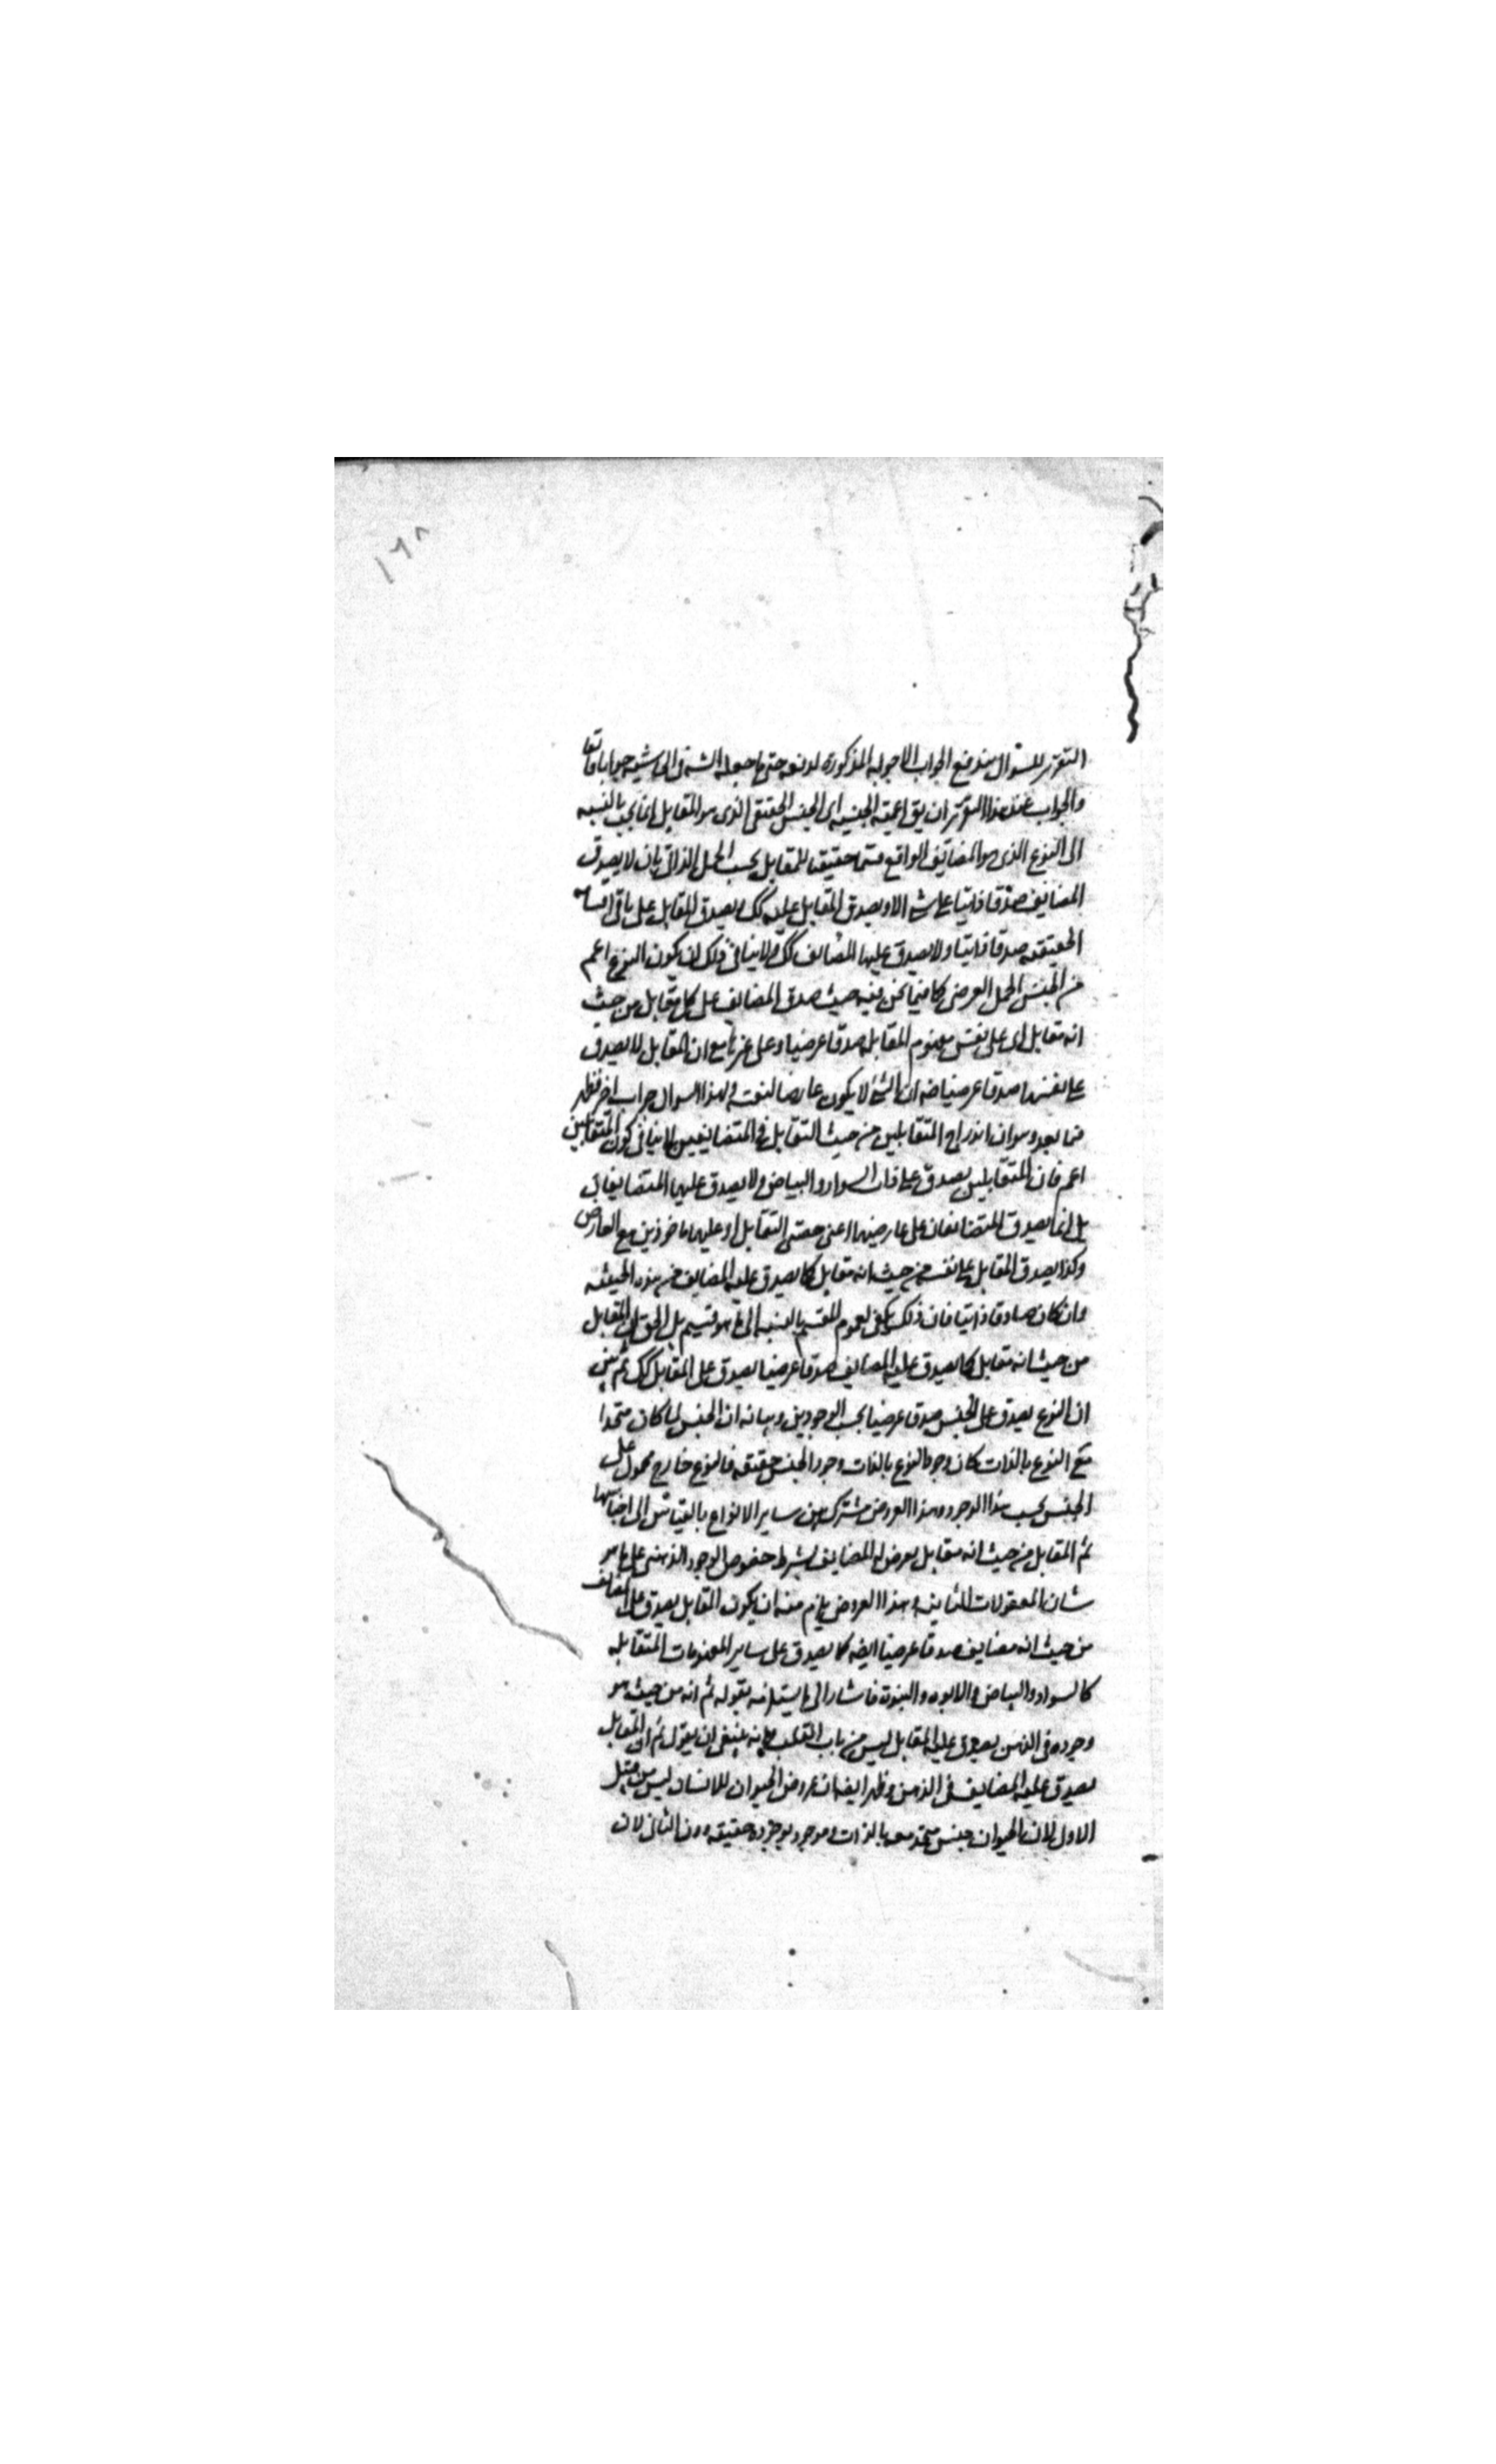 ١٦٨
التقرير للسؤال يندفع الجواب الاجوبه المذكورة لدفعه حتى ما جعله الشه الى جوابا
والجواب عن هذا التقرير ان يق اعمية الجنسيه اى الجنس الحقيقى الذى هو المقابل انما يجب بالنسبه
الى النوع الذى هو المضايف الواقع قسما حقيقيا للمقابل بحسب الحمل الذاتى بان لا يصدق
المضايف صدقا ذاتيا على شى الا ويصدق المقابل عليه كك ويصدق المقابل على باقى اقسامه
الحقيقيه صدقا ذاتيا ولا يصدق عليها المضايف كك ولا ينافى ذلك ان يكون النوع اعم
من الجنس الحمل العرضى كما فيما نحن فيه حيث صدق المضايف على كل مقابل من حيث
انه مقابل اى على نفس مفهوم المقابل صدقا عرضيا وعلى غيرها مع ان المقابل لا يصدق
على نفسها صدقا عرضيا ضه ان الشئ لا يكون عارضا لنفسه ولهذا السوال جواب اخر فظهر
فيما بعد وهو ان اندراج المتقابلين من حيث التقابل فى المتضايفين لا ينافى كون المتقابلين
اعم فان المتقابلين يصدق على ذات السواد والبياض ولا يصدق عليها المتضايفان
بل انما يصدق المتضايفان على عارضيهما اعنى حصتى التقابل او عليهما ماخوذين مع العارض
وكذا يصدق المقابل على نفسه من حيث انه مقابل كما يصدق عليه المضايف من هذه الحيثيه
وان كان صادقا ذاتيا فان ذلك يكفى لعموم المقسم بالنسبه الى ما هو قسيم بل الحق ان المقابل
من حيث انه مقابل كما يصدق عليه المضايف صدقا عرضيا يصدق على المقابل كك ثم
ان النوع يصدق على الجنس صدقا عرضيا بحسب الوجودين وبيانه ان الجنس لما كان متحدا
مع النوع بالذات كان وجود النوع بالذات وجود الجنس حقيقه فالنوع خارج محمول على
الجنس بحسب هذا الوجود وهذا العروض مشترك بين ساير الانواع بالقياس الى اجناسها
ثم المقابل من حيث انه مقابل يعرض له المضايف بشرط خصوص الوجود الذهنى على ما هو
شان المعقولات الثانيه وهذا العروض يلزم منه ان يكون المقابل يصدق على المضايف
من حيث انه مضايف صدقا عرضيا ايضه كما يصدق على ساير المفهومات المتقابله
كالسواد والبياض والابوه والبنوة فاشار الى ما يستلزمه بقوله ثم انه من حيث هو
وجوده فى الذهن يصدق عليه المقابل ليس من باب القلب بانه ينبغى ان يقول ثم ان المقابل
يصدق عليه المضايف فى الذهن وظهر ايضه ان عروض الحيوان للانسان ليس من قبيل
الاول لان الحيوان جنس متحد معه بالذات وموجود بوجوده حقيقه دون الثانى لان